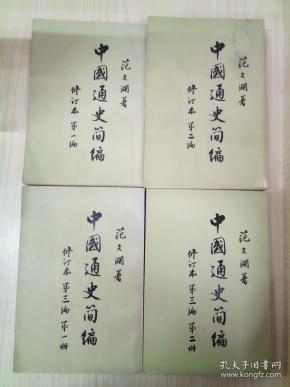 范文瀾著
中國通史简编
修订本 第一编
范文瀾著
中國通史简编
修订本 第二编
范文瀾著
中國通史简编
修订本 第三编 第一册
范文瀾著
中國通史简编
修订本 第三编 第二册
孔夫子旧书网